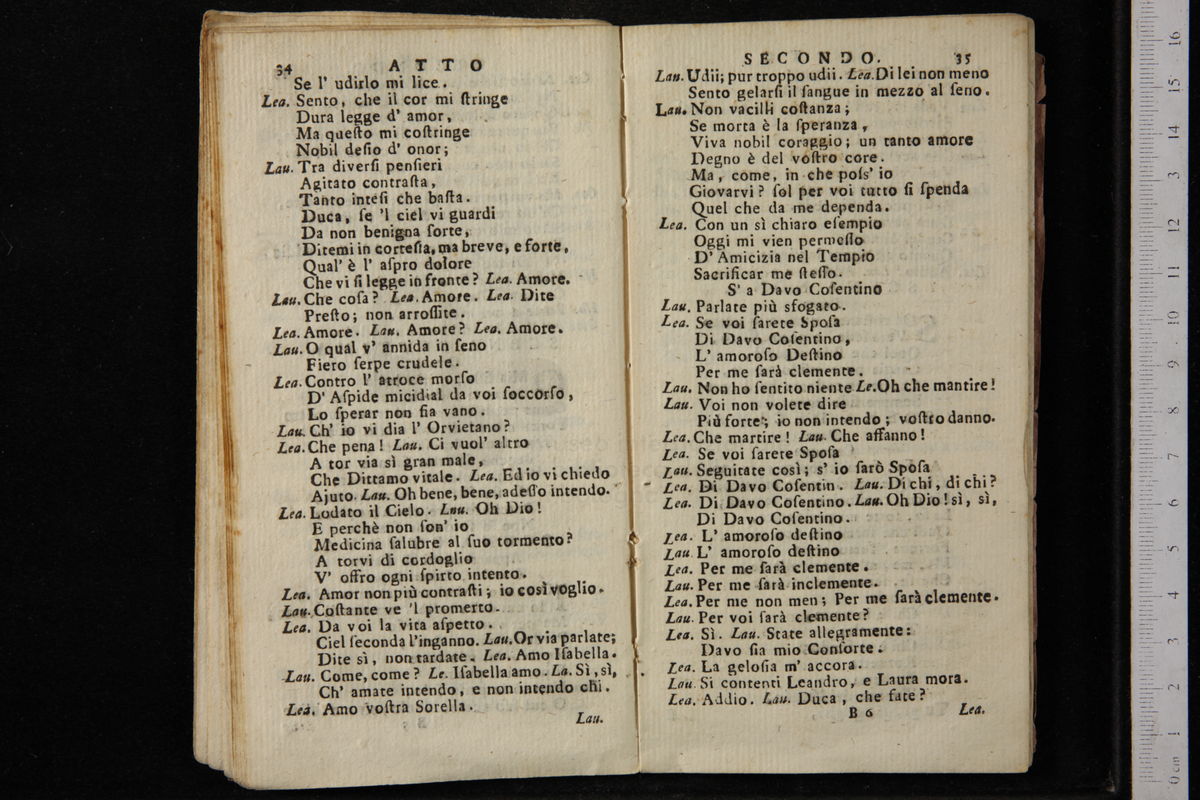 34 ATTO
Se l' udirlo mi lice.
Lea. Sento, che il cor mi ſtringe
Dura legge d' amor,
Ma queſto mi coſtringe
Nobil deſio d' onor;
Lau. Tra diverſi penſieri
Agitato contraſta,
Tanto inteſi che baſta.
Duca, ſe 'l ciel vi guardi
Da non benigna ſorte,
Ditemi in corteſia, ma breve, e forte,
Qual' è l' aſpro dolore
Che vi ſi legge in fronte? Lea. Amore.
Lau. Che coſa? Lea. Amore. Lea. Dite
Preſto; non arroſſite.
Lea. Amore. Lau. Amore? Lea. Amore.
Lau. O qual v' annida in ſeno
Fiero ſerpe crudele.
Lea. Contro l' atroce morſo
D' Aſpide micidial da voi ſoccorſo,
Lo ſperar non ſia vano.
Lau. Ch' io vi dia l' Orvietano?
Lea. Che pena! Lau. Ci vuol' altro
A tor via sì gran male,
Che Dittamo vitale. Lea. Ed io vi chiedo
Ajuto. Lau. Oh bene, bene, adeſſo intendo.
Lea. Lodato il Cielo. Lau. Oh Dio!
E perchè non ſon' io
Medicina ſalubre al ſuo tormento?
A torvi di cordoglio
V' offro ogni ſpirto intento.
Lea. Amor non più contraſti; io così voglio.
Lau. Coſtante ve 'l promerto.
Lea. Da voi la vita aſpetto.
Ciel ſeconda l'inganno. Lau. Or via parlate;
Dite sì, non tardate. Lea. Amo Iſabella.
Lau. Come, come? Le. Iſabella amo. La. Sì, sì,
Ch' amate intendo, e non intendo chi.
Lea. Amo voſtra Sorella.
Lau.
SECONDO. 35
Lau. Udii; pur troppo udii. Lea. Di lei non meno
Sento gelarſi il ſangue in mezzo al ſeno.
Lau. Non vacilli coſtanza;
Se morta è la ſperanza,
Viva nobil coraggio; un tanto amore
Degno è del voſtro core.
Ma, come, in che poſs' io
Giovarvi? ſol per voi tutto ſi ſpenda
Quel che da me dependa.
Lea. Con un sì chiaro eſempio
Oggi mi vien permeſſo
D' Amicizia nel Tempio
Sacrificar me ſteſſo.
S' a Davo Coſentino
Lau. Parlate più sfogato.
Lea. Se voi ſarete Spoſa
Di Davo Coſentino,
L' amoroſo Deſtino
Per me ſarà clemente.
Lau. Non ho ſentito niente Le. Oh che mantire!
Lau. Voi non volete dire
Più forte; io non intendo; voſtro danno.
Lea. Che martire! Lau. Che affanno!
Lea. Se voi ſarete Spoſa
Lau. Seguitate così; s' io ſarò Spoſa
Lea. Di Davo Coſentin. Lau. Di chi, di chi?
Lea. Di Davo Coſentino. Lau. Oh Dio! sì, sì,
Di Davo Coſentino.
Lea. L' amoroſo deſtino
Lau. L' amoroſo deſtino
Lea. Per me ſarà clemente.
Lau. Per me ſarà inclemente.
Lea. Per me non men; Per me ſarà clemente.
Lau. Per voi ſarà clemente?
Lea. Sì. Lau. State allegramente:
Davo ſia mio Conſorte.
Lea. La geloſia m' accora.
Lau. Si contenti Leandro, e Laura mora.
Lea. Addio. Lau. Duca, che fate?
B 6 Lea.
0 cm 1 2 3 4 5 6 7 8 9 10 11 12 13 14 15 16